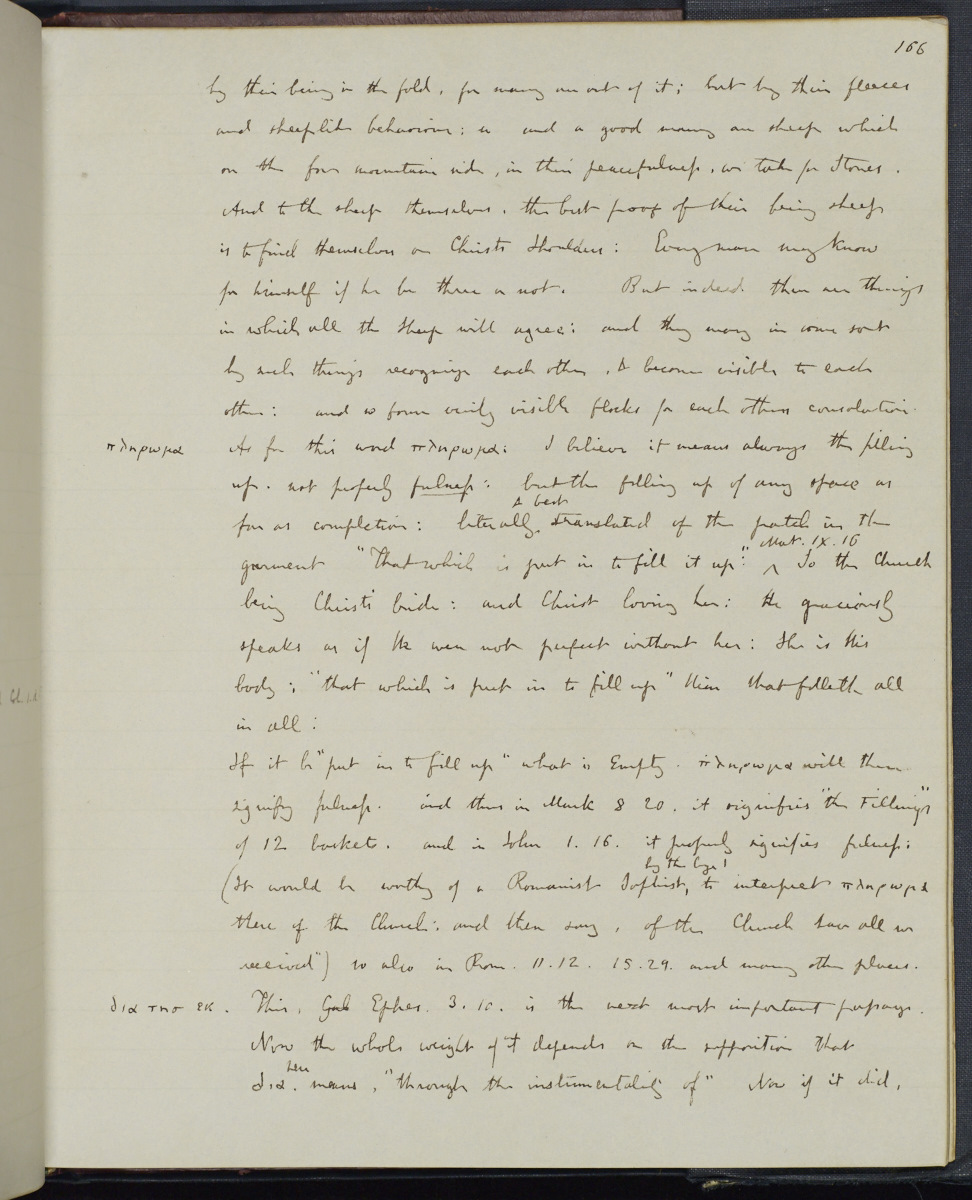 166
by their being in the fold, for many are out of it; but by their fleeces
and sheeplike behaviour: and a good many are sheep which
on the far mountain side, in their peacefulness, we take for Stones.
And to the sheep themselves, the best proof of their being sheep
is to find themselves on Christs Shoulders: Every man may know
for himself if he be there or not. But indeed there are things
in which all the sheep will agree: and they may in some sort
by such things recognize each other, & become visible to each
other: and so form verily visible flocks for each others consolation.
πληρωμα As for this word πληρωμα: I believe it means always the filling
up. not properly fulness: but the filling up of any space as
far as completion: literally & best translated of the patch in the
garment "That which is put in to fill it up:" Mat. IX. 16 So the Church
being Christ's bride: and Christ loving her: He graciously
speaks as if He were not perfect without her: She is His
body; "that which is put in to fill up" Him that filleth all
in all:
If it be "put in to fill up" what is Empty. πληρωμα will then
signify fulness. and thus in Mark 8 20. it signifies "the Fillings"
of 12 baskets. and in John 1. 16. it properly signifies fulness:
(It would be worthy of a Romanist Sophist, by the bye! to interpret πληρωμα
there of the Church: and then say, of the Church have all we
received") so also in Rom. 11.12. 15.29. and many other places.
δια τησ εκ. This, Gal Ephes. 3. 10. is the next most important passage.
Now the whole weight of it depends on the supposition that
δια. here means, "through the instrumentality of" Now if it did,